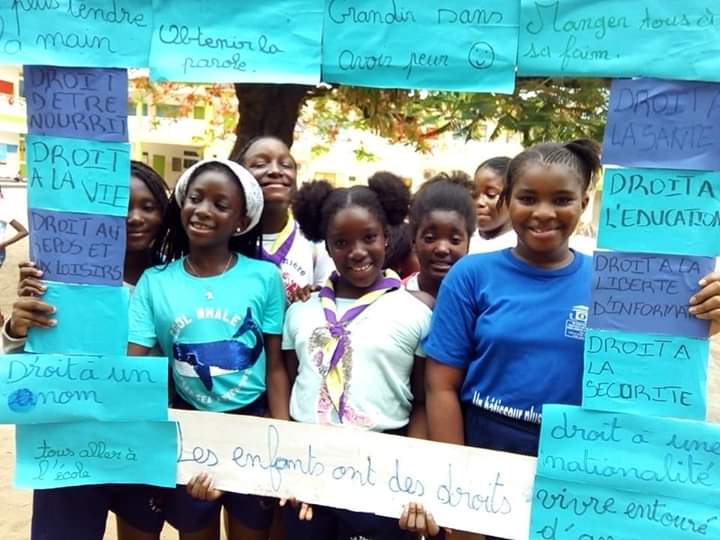 plus tendre
la main
Obtenir la
parole.
Grandir sans
avoir peur
Manger tous à
sa faim.
DROIT
D'ETRE
NOURRIT
DROIT
A LA VIE
DROIT AU
REPOS ET
AUX LOISIRS
Droit à un
nom
tous aller à
l'école
Les enfants ont des droits
DROIT A
LA SANTE
DROIT A
L'EDUCATION
DROIT A LA
LIBERTE
D'INFORMA
DROIT A
LA
SECORITE
droit à une
nationalité
vivre entouré
d'a
COOL WHALE
Un bâtisseur plus